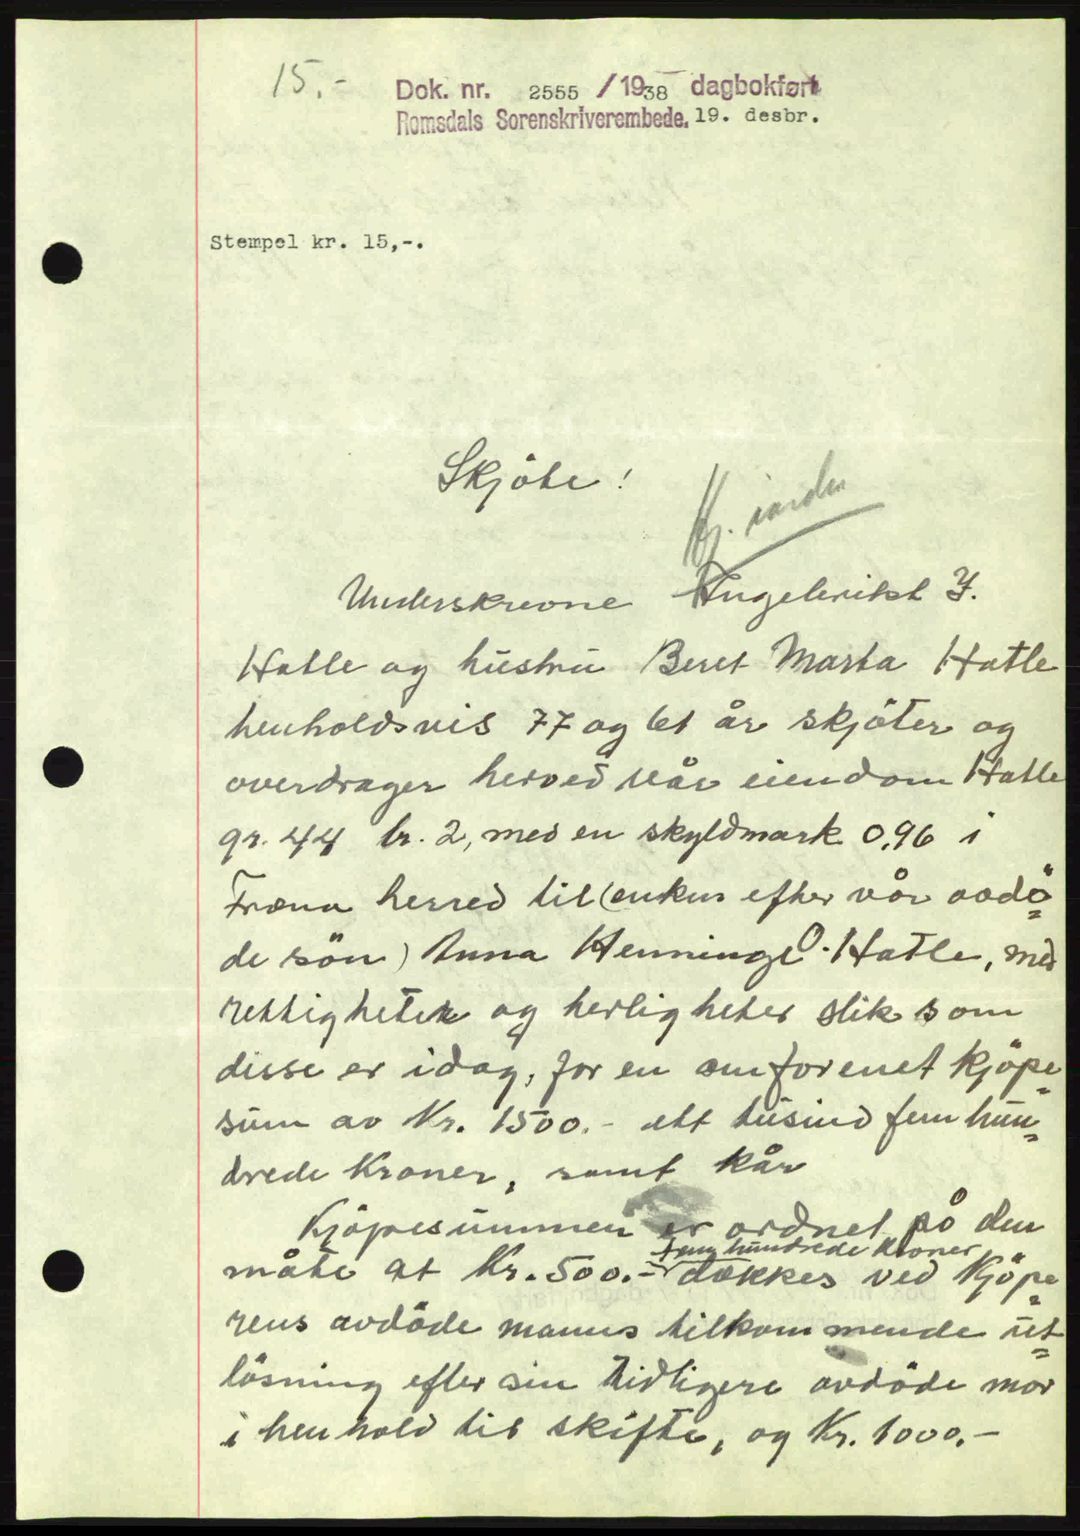 15.-
Dok. nr. 2555 /1938 dagbokført
Romsdals Sorenskriverembede. 19. desbr.
Stempel kr. 15,-.
Skjöte!
Underskrevne Angelerikst I.
Hatle og hustru Beret Marta Hatle
henholdsvis 77 og 61 år skjöter og
overdrager herved vår eiendom Hatle
gr. 44 br. 2, med en skyldmark 0,96 i
Fræna herred til (enken efter vår avdö=
de sön) Anna Henninge O. Hatle, med
rettigheter og herligheter slik som
disse er idag, for en omforenet kjöpe=
sum av Kr. 1500.- ett tusind fem hun=
drede Kroner, samt kår
Kjöpesummen er ordnet på den
fem hundrede Kroner
måte at Kr. 500.- dækkes ved Kjöpe=
rens avdöde manns tilkommende ut=
lösning efter sin tidligere avdöde mor
i henhold til skifte, og Kr. 1000.-